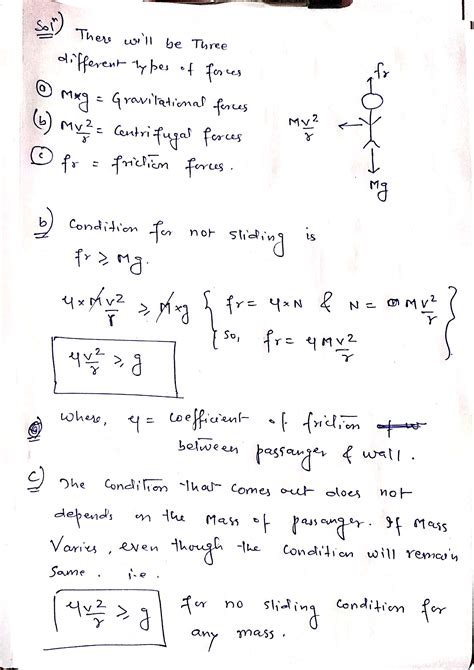 Solⁿ) There will be Three
different types of forces
(a) Mxg = Gravitational forces
(b) Mv²/r = Centrifugal forces
(c) fr = friction forces.
fr
Mv²/r
Mg
b) Condition for not sliding is
fr ≥ Mg.
μ x Mv²/r ≥ Mxg { fr = μxN & N = Mv²/r }
So, fr = μMv²/r
μv²/r ≥ g
where, μ = coefficient of friction
between passanger & wall.
C) The condition that comes out does not
depends on the Mass of passanger. If Mass
Varies, even though the condition will remain
Same. i.e.
μv²/r ≥ g for no sliding condition for
any mass.